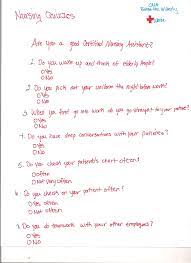 Nursing Quizzes
CNA
Are you a good Certified Nursing Assistant?
1. Do you wake up and think of elderly people?
O Yes
O No
2. Do you pick out your uniform the night before work?
O Yes
O No
3. When you first go into work do you go straight to your patient?
O Yes
O No
4. Do you have deep conversations with your patients?
O Yes
O No
5. Do you check your patient's chart often?
O Often
O Not very often
6. Do you check on your patient often?
O Often
O Not very often
7. Do you do teamwork with your other employees?
O Yes
O No